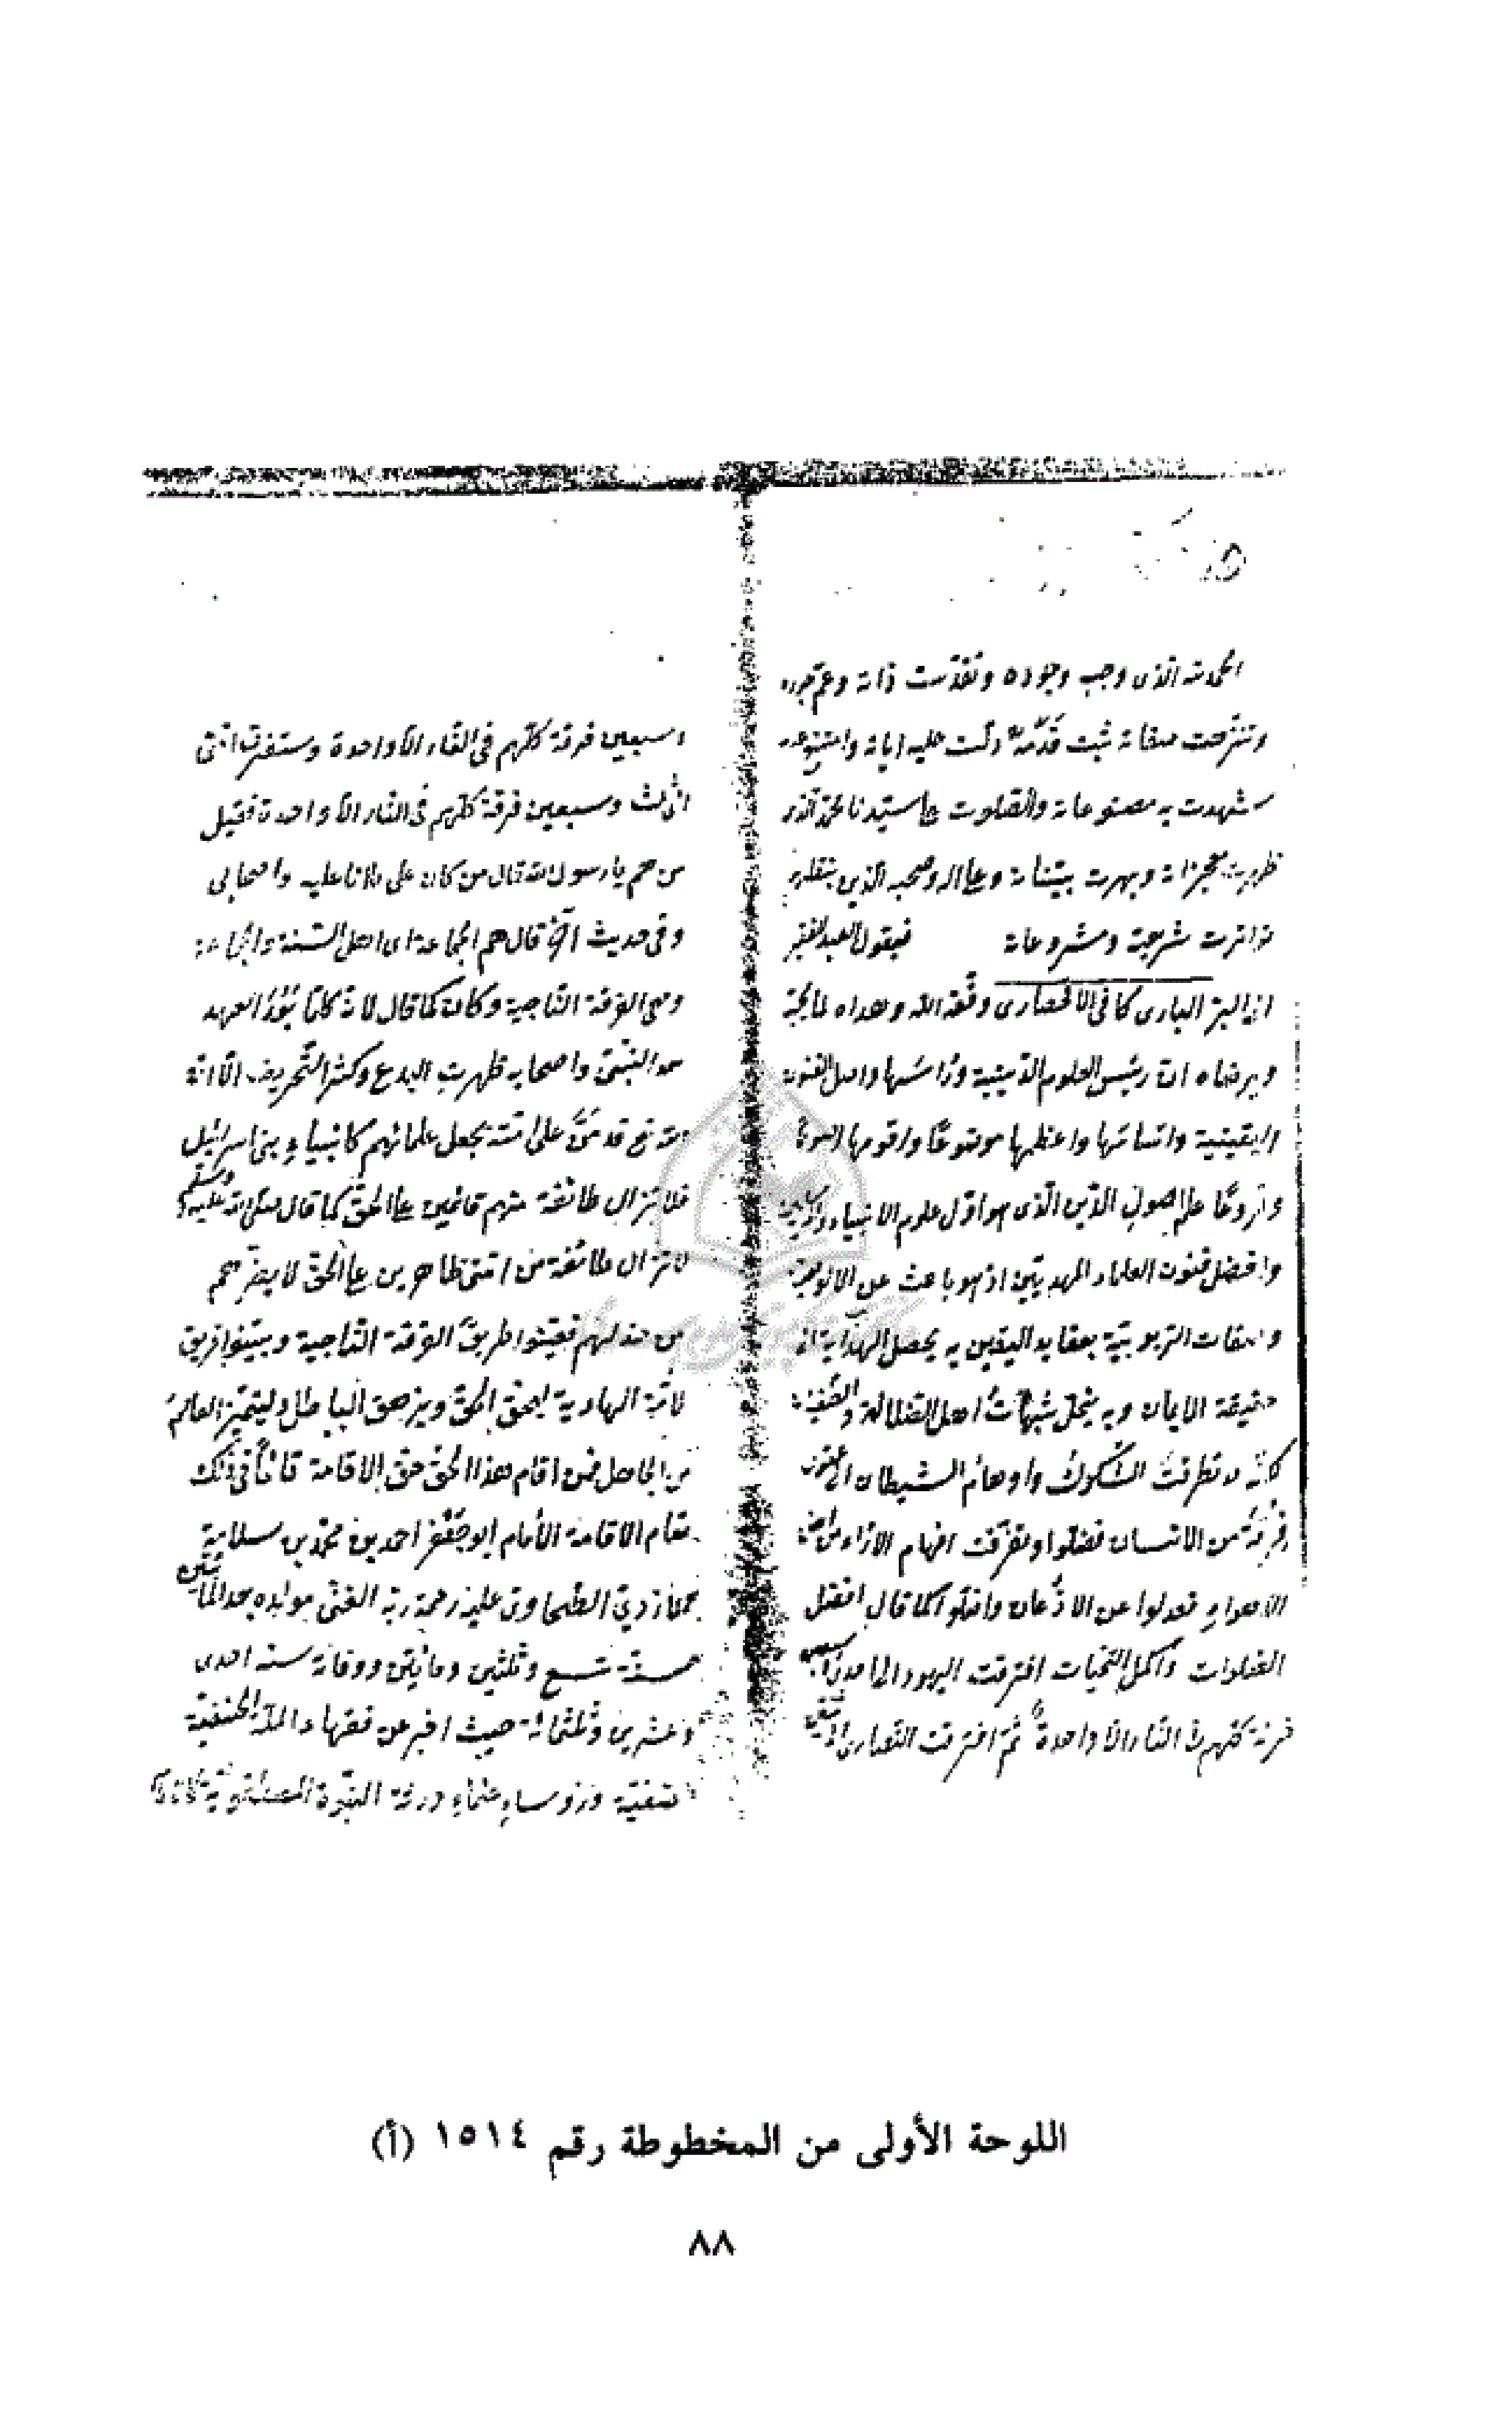 الحمد لله الذى وجب وجوده وتقدست ذاته وعم جوده
وتنزهت صفاته ثبت قدمه دلت عليه اياته وامتنع عدمه
شهدت به مصنوعاته والصلوت على سيدنا محمد الذى
ظهرت معجزاته وبهرت بيناته وعلى اله وصحبه الذين بنقلهم
تواترت شريعته ومشروعاته فيقول العبد الفقير
الى البر البارى كافى الاقحصارى وفقه الله وهداه لما يحبه
ويرضاه ان رئيس العلوم الدينية وراسها واصل الفنون
اليقينية واساسها واعظمها موضوعا واقومها اصولا
وفروعا علم اصول الدين الذى هو اول علوم الانبياء
وافضل فنون العلماء المهديين اذ هو باحث عن الالوهية
وصفات الربوبية بعقايد اليقين به يحصل الهداية الى
حقيقة الايمان وبه ينحل شبهات اهل الضلالة
لانه لا تطرقت الشكوك واوهام الشيطان الى
فرقة من الانسان فضلوا وتفرقت افهام الاراء من
الاهواء فعدلوا عن الاذعان واضلوا كما قال افضل
الصلوات واكمل التحيات افترقت اليهود الى احدى وسبعين
فرقة كلهم فى النار الا واحدة ثم افترقت النصارى الى
وسبعين فرقة كلهم فى النار الا واحدة وستفترق امتى
الى ثلث وسبعين فرقة كلهم فى النار الا واحدة فقيل
من هم يا رسول الله قال من كان على ما انا عليه واصحابى
وفى حديث اخر قال هم الجماعة اى اهل السنة والجماعة
وهى الفرقة الناجية وكان كما قال لانه كلما بعد العهد
من النبى واصحابه ظهرت البدع وكثر التحريف الا انه
الله تع قد من على امته بجعل علمائهم كانبياء بنى اسرائيل
فلا يزال طائفة منهم قائمين على الحق كما قال صلى الله عليه وسلم
لا تزال طائفة من امتى ظاهرين على الحق لا يضرهم
من خذلهم فعينوا طريق الفرقة الناجية وبينوا فريق
الهادية ليحق الحق ويزهق الباطل وليتميز العالم
من الجاهل فمن اقام هذا الحق حق الاقامة قائما فى ذلك
مقام الاقامة الامام ابو جعفر احمد بن محمد بن سلامة
الازدى الطحاوى عليه رحمة ربه الغنى مولده بعد المائتين
سنة تسع وثلثين ومائتين ووفاته سنة احدى
وعشرين وثلثمائة حيث اخبر عن فقهاء الملة الحنفية
ورؤساء علماء
اللوحة الأولى من المخطوطة رقم ١٥١٤ (أ)
٨٨